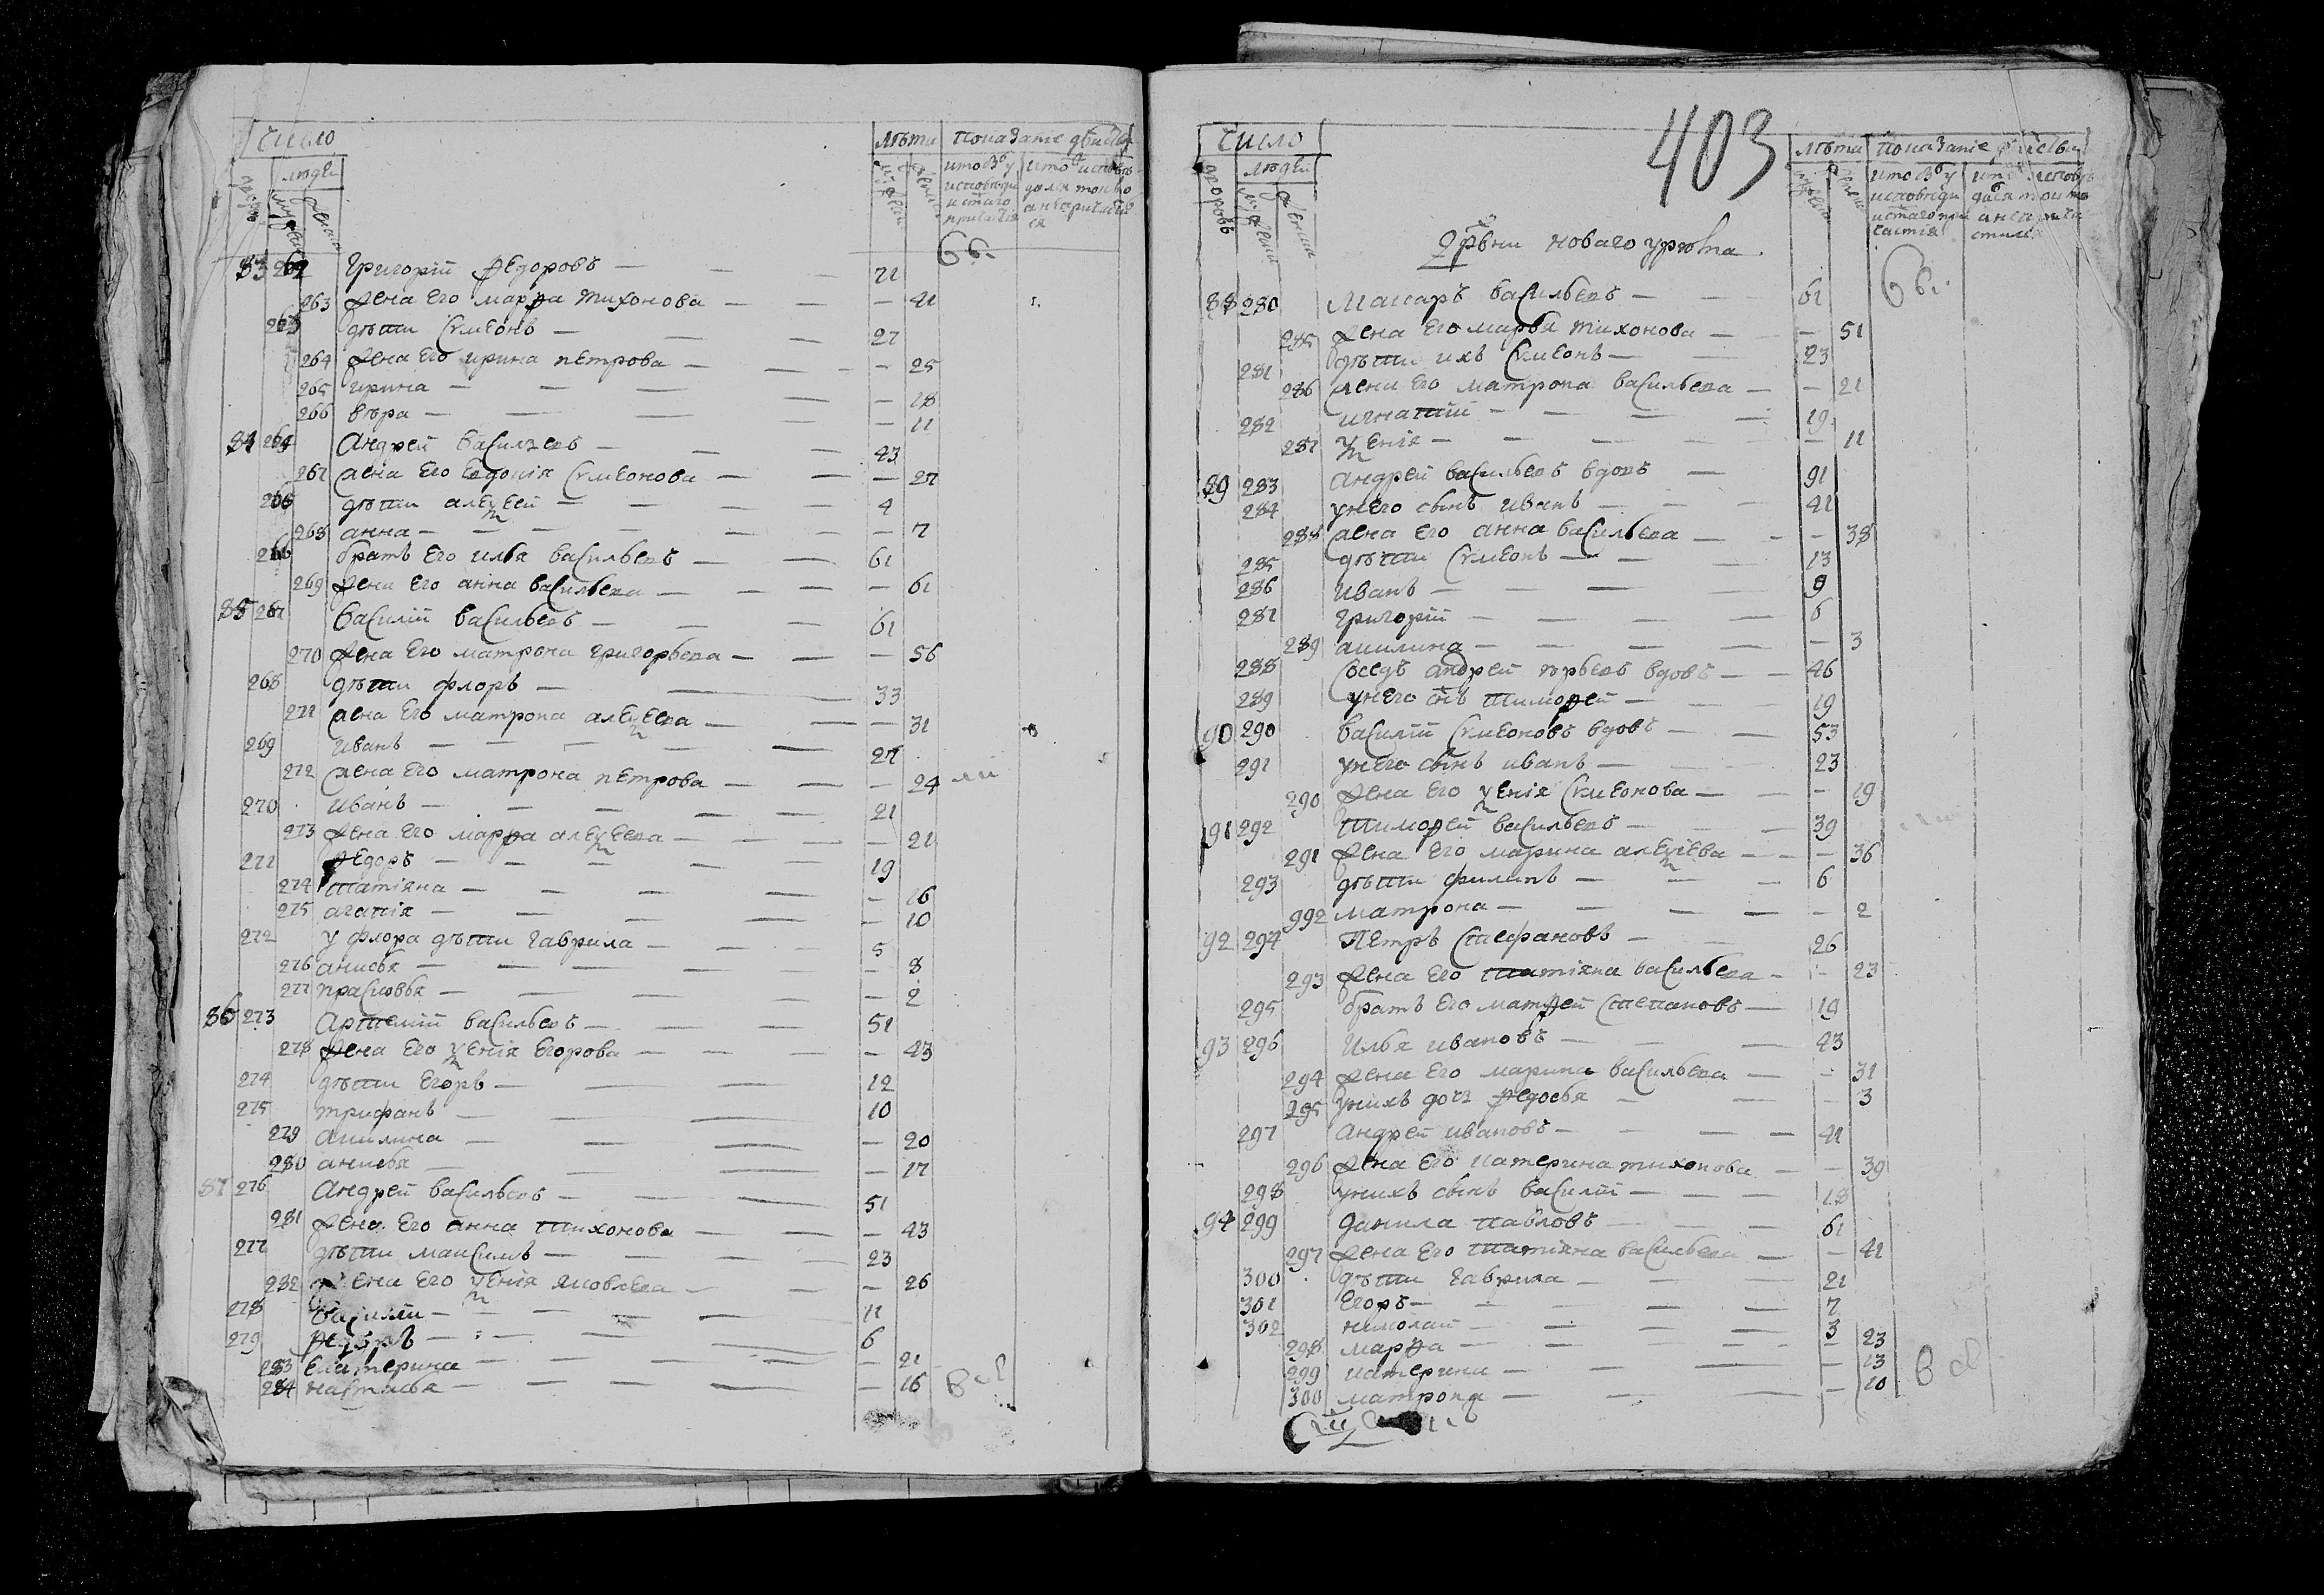 число
лѣта показание дѣйства
людей
дворовъ
мужеска
женска
кто были у исповѣди и стаго причастія
83 262 Григорій Ѳедоровъ — — — 71
263 жена Его марѳа тихонова — — — 41
263 дѣти Симеонъ — — 27
264 жена Его ирина петрова — — — 25
265 ирина — — — 18
266 вѣра — — — 11
84 264 Андрей васильевъ — — 43
267 жена Его Евдокія Симеонова — — — 27
265 дѣти алеѯей — — — 4
268 анна — — — 7
266 братъ Его илья васильевъ — — 61
269 жена Его анна васильева — — — 61
85 267 василій васильевъ — — — 61
270 жена Его матрона григорьева — — — 56
268 дѣти флоръ — — — 33
271 жена Его матрона алеѯеева — — — 31
269 иванъ — — — — 27
272 жена Его матрона петрова — — — 24
270 иванъ — — — — 21
273 жена Его марѳа алеѯеева — — — 21
271 Ѳедоръ — — — 19
274 татіяна — — — — 16
275 агапія — — — — 10
272 у флора дѣти гаврила — — — 5
276 анисья — — — — 8
277 прасковья — — — — 2
86 273 Артемій васильевъ — — — 51
278 жена Его ѯенія Егорова — — — 43
274 дѣти Егоръ — — — 12
275 трифанъ — — — 10
279 акилина — — — 20
280 анисья — — — 17
87 276 Андрей васильевъ — — — 51
281 жена Его анна тихонова — — — 43
277 дѣти максимъ — — — 23
282 жена Его ѯенія яковлева — — — 26
278 василій — — — 11
279 Ѳедоръ — — — 6
283 Екатерина — — — — 21
284 настасья — — — — 16
403
число
лѣта показание дѣйства
людей
дворовъ
мужеска
женска
дрвни новаго урюма
88 280 Макаръ васильевъ — — 61
285 жена Его марья тихонова — — 51
281 дѣти ихъ Симеонъ — — 23
286 жена Его матрона васильева — — 21
282 игнатій — — — 19
287 ѯенія — — — — 11
89 283 Андрей васильевъ вдовъ — 91
284 у него сынъ иванъ — — — 41
288 жена Его анна васильева — — — 38
285 дѣти Симеонъ — — — 13
286 иванъ — — — 9
287 григорій — — — 6
289 акилина — — — — 3
288 Сосѣдъ андрей юрьевъ вдовъ — — 46
289 у него снъ тимоѳей — — — 19
90 290 василій Симеоновъ вдовъ — — 53
291 у него сынъ иванъ — — 23
290 жена Его ѯенія Симеонова — — — 19
91 292 тимоѳей васильевъ — — — 39
291 жена Его марина алеѯіева — — — 36
293 дѣти филипъ — — — 6
992 матрона — — — — 2
92 294 Петръ Стефановъ — — 26
293 жена Его татіяна васильева — — 23
295 братъ Его матѳей Степановъ — 19
93 296 Илья ивановъ — — — 43
294 жена Его марина васильева — — 31
295 у нихъ дочь Ѳедосья — — — 3
297 Андрей ивановъ — — — — 41
296 жена Его катерина тихонова — — 39
298 у нихъ сынъ василій — — — 18
94 299 данила павловъ — — — 61
297 жена Его татіяна васильева — — 41
300 дѣти гаврила — — — 21
301 Егоръ — — — — 7
302 николай — — — — 3
298 марѳа — — — — 23
299 катерина — — — — 13
300 матрона — — — 10